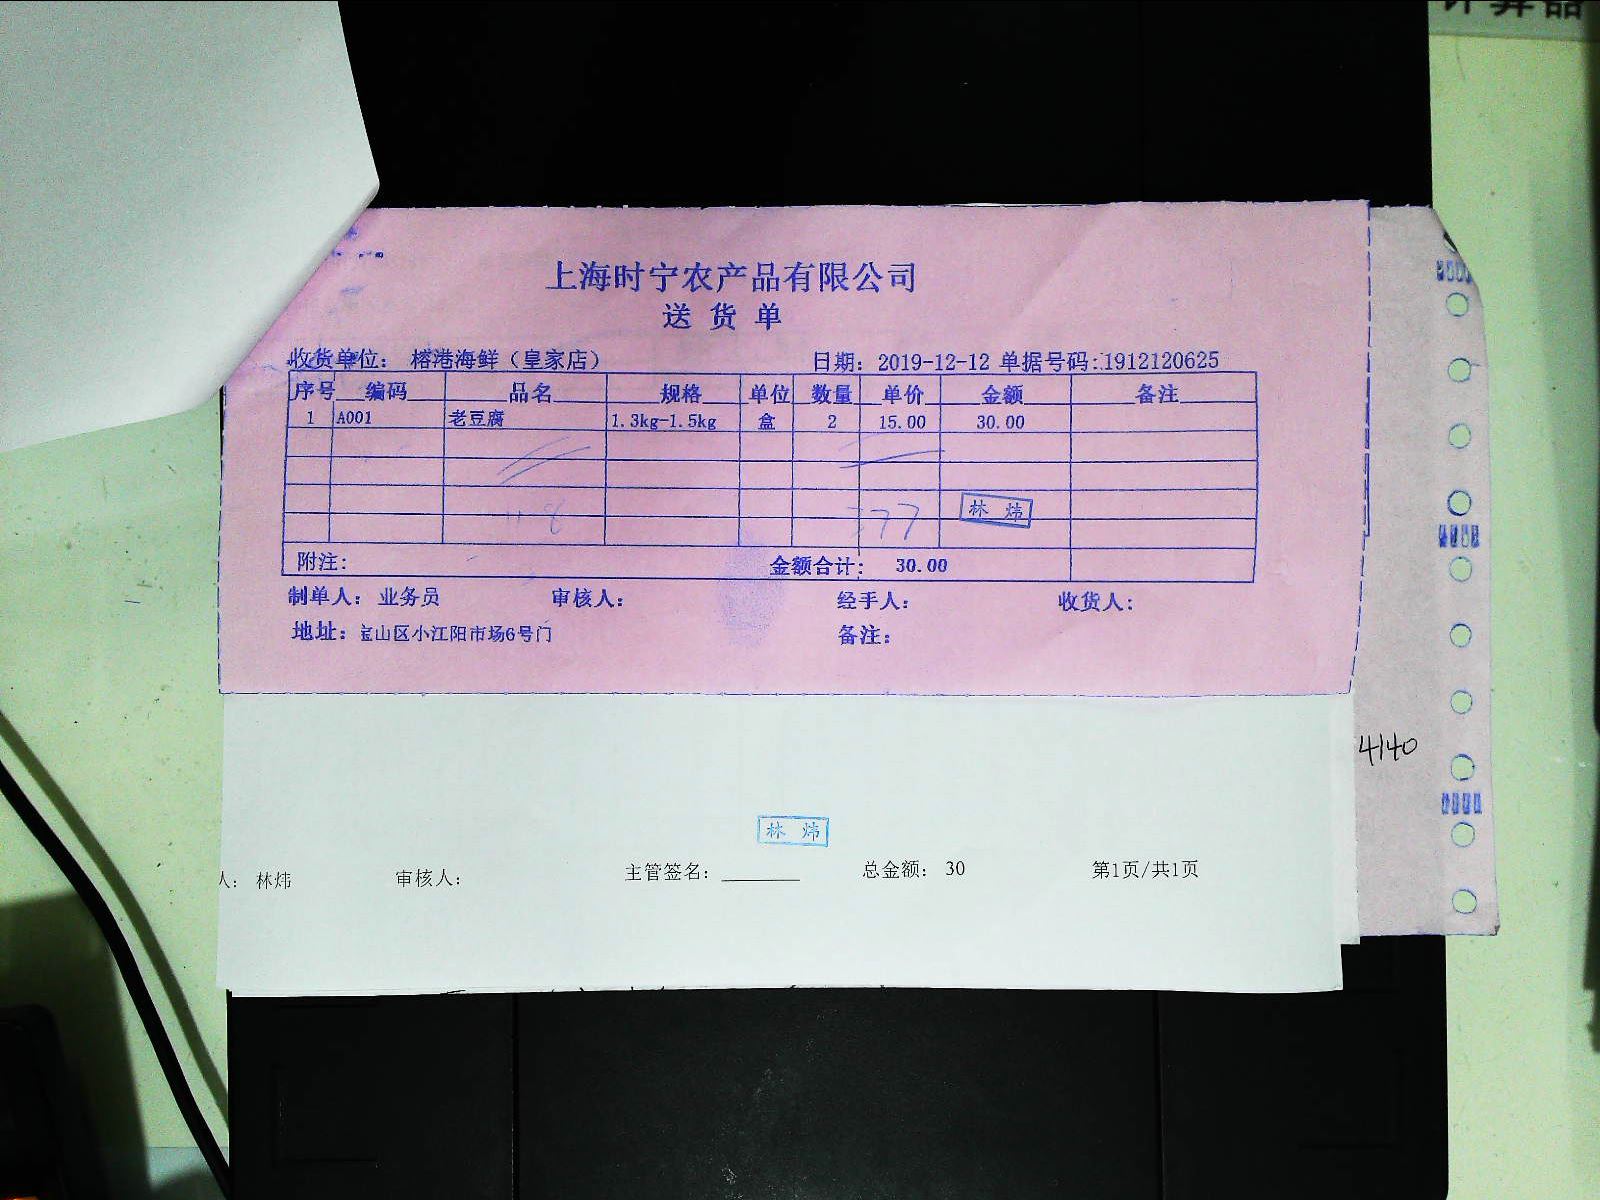 计算器
上海时宁农产品有限公司
送 货 单
收货单位： 榕港海鲜（皇家店） 日期：2019-12-12 单据号码:1912120625
序号 编码 品名 规格 单位 数量 单价 金额 备注
1 A001 老豆腐 1.3kg-1.5kg 盒 2 15.00 30.00
林 炜
附注： 金额合计： 30.00
制单人：业务员 审核人： 经手人： 收货人：
地址：宝山区小江阳市场6号门 备注：
4140
林 炜
人： 林炜 审核人： 主管签名：________ 总金额： 30 第1页/共1页